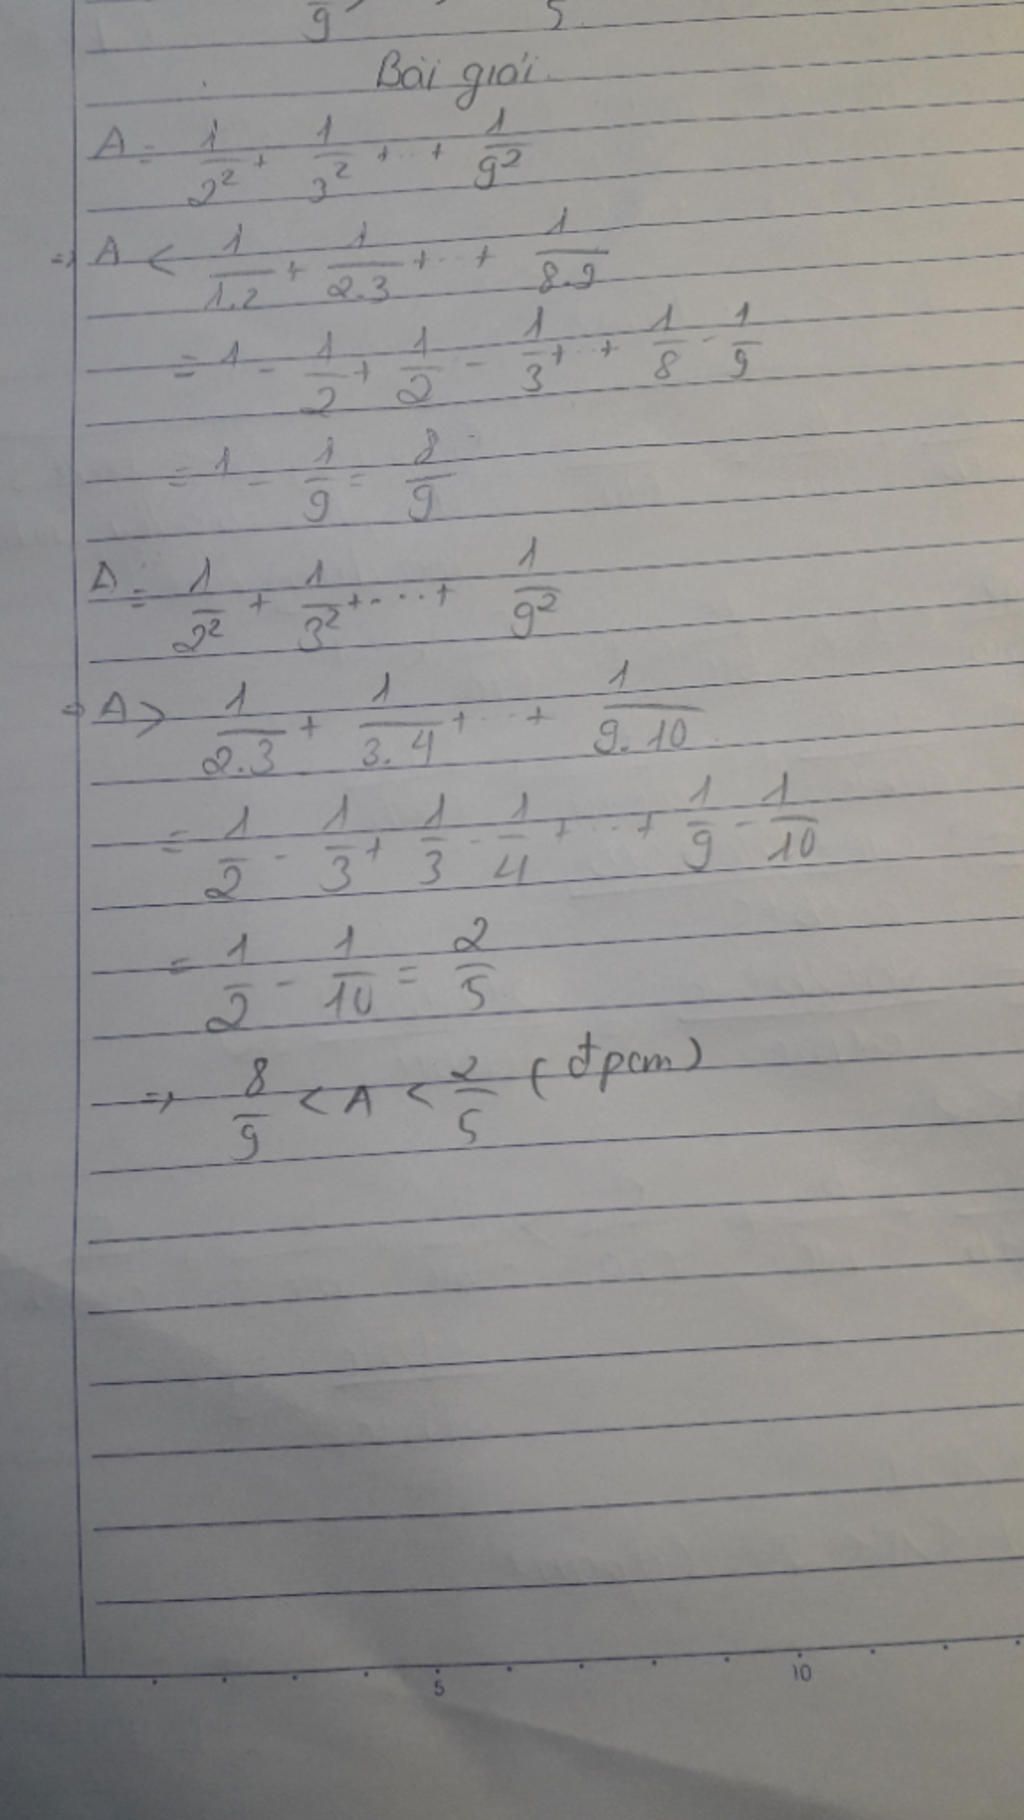 9 5
Bài giải
A = 1/2² + 1/3² + ... + 1/9²
⇒ A < 1/1.2 + 1/2.3 + ... + 1/8.9
= 1 - 1/2 + 1/2 - 1/3 + ... + 1/8 - 1/9
= 1 - 1/9 = 8/9
A = 1/2² + 1/3² + ... + 1/9²
⇒ A > 1/2.3 + 1/3.4 + ... + 1/9.10
= 1/2 - 1/3 + 1/3 - 1/4 + ... + 1/9 - 1/10
= 1/2 - 1/10 = 2/5
⇒ 8/9 < A < 2/5 (đpcm)
5 10